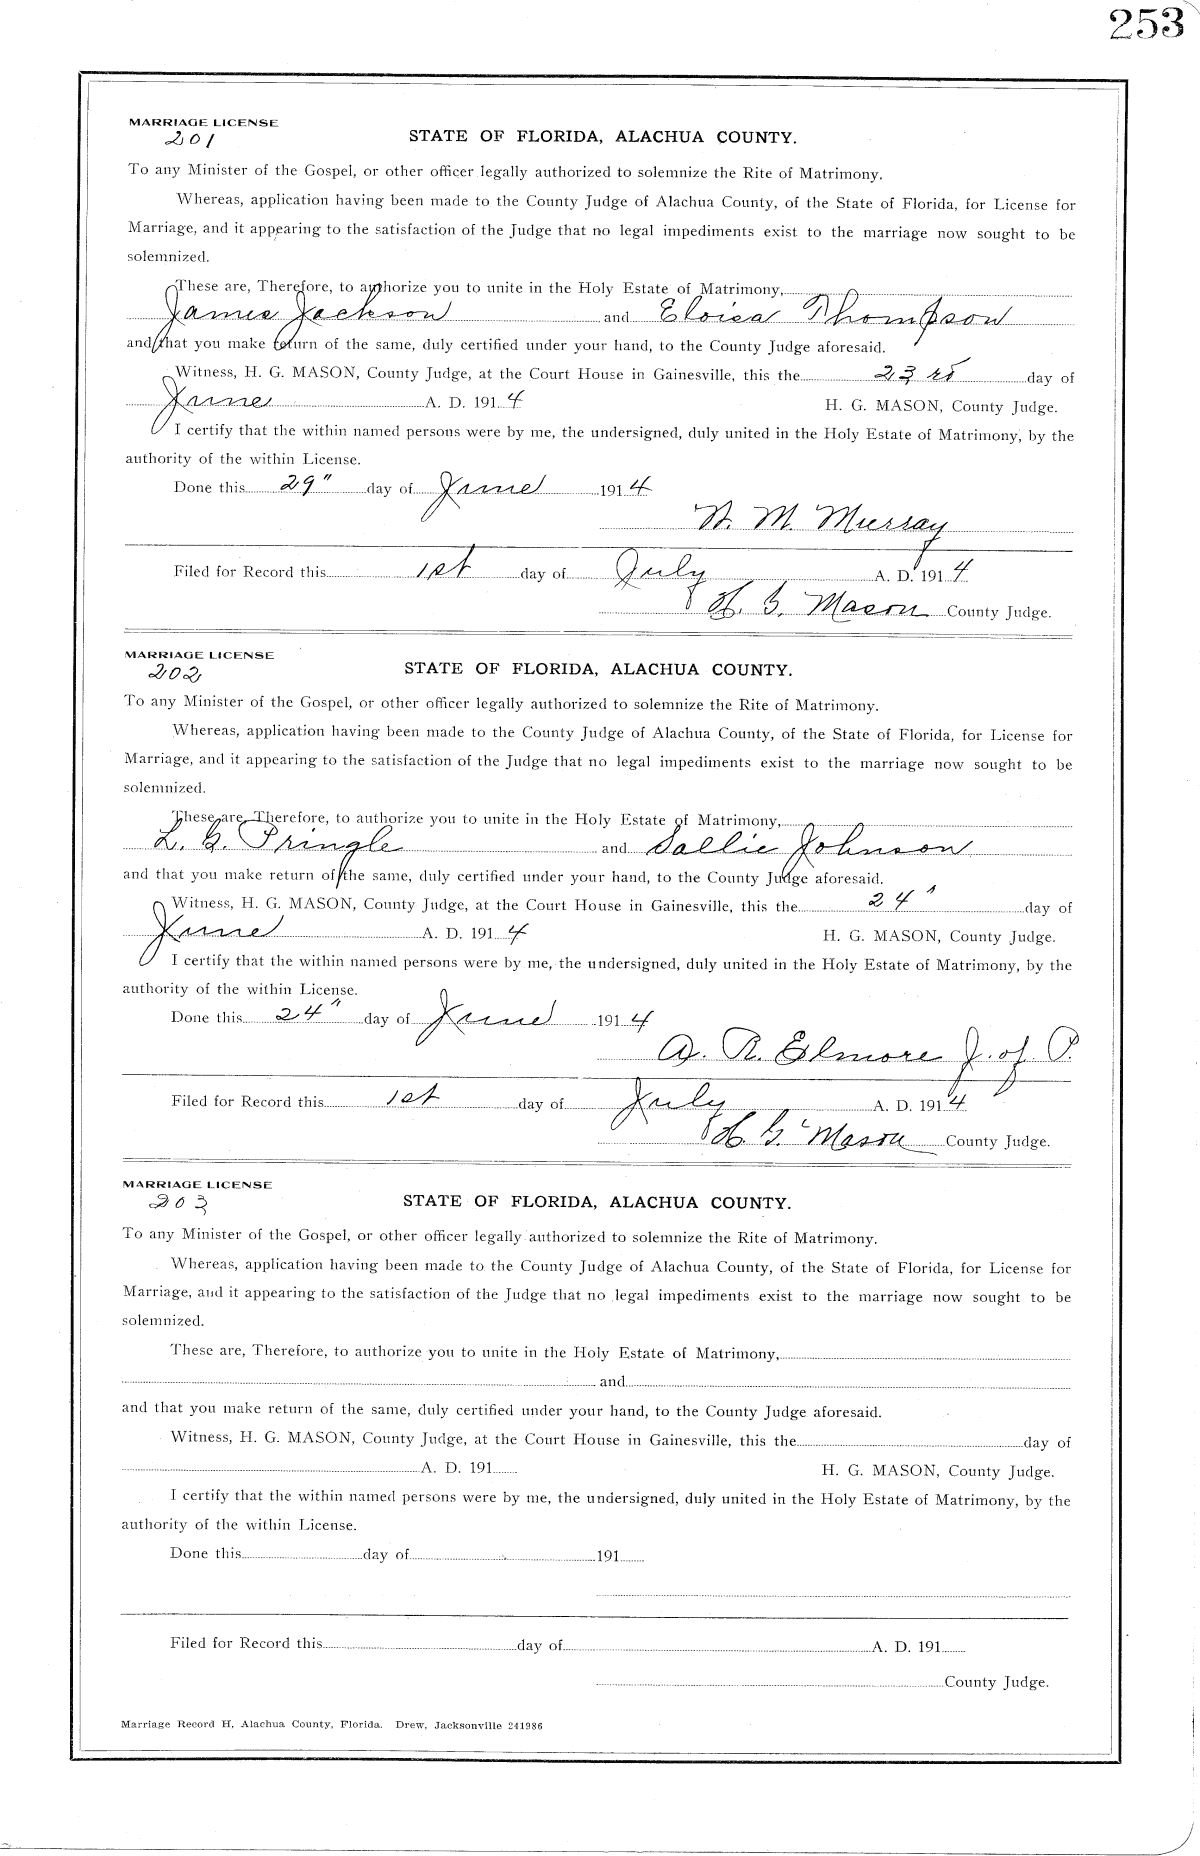 253
MARRIAGE LICENSE
201
STATE OF FLORIDA, ALACHUA COUNTY.
To any Minister of the Gospel, or other officer legally authorized to solemnize the Rite of Matrimony.
Whereas, application having been made to the County Judge of Alachua County, of the State of Florida, for License for
Marriage, and it appearing to the satisfaction of the Judge that no legal impediments exist to the marriage now sought to be
solemnized.
These are, Therefore, to authorize you to unite in the Holy Estate of Matrimony,
James Jackson and Eloisa Thompson
and that you make return of the same, duly certified under your hand, to the County Judge aforesaid.
Witness, H. G. MASON, County Judge, at the Court House in Gainesville, this the 23rd day of
June A. D. 1914 H. G. MASON, County Judge.
I certify that the within named persons were by me, the undersigned, duly united in the Holy Estate of Matrimony, by the
authority of the within License.
Done this 29" day of June 1914
M. Murray
Filed for Record this 1st day of July A. D. 1914
H. G. Mason County Judge.
MARRIAGE LICENSE
202
STATE OF FLORIDA, ALACHUA COUNTY.
To any Minister of the Gospel, or other officer legally authorized to solemnize the Rite of Matrimony.
Whereas, application having been made to the County Judge of Alachua County, of the State of Florida, for License for
Marriage, and it appearing to the satisfaction of the Judge that no legal impediments exist to the marriage now sought to be
solemnized.
These are, Therefore, to authorize you to unite in the Holy Estate of Matrimony,
L. G. Pringle and Sallie Johnson
and that you make return of the same, duly certified under your hand, to the County Judge aforesaid.
Witness, H. G. MASON, County Judge, at the Court House in Gainesville, this the 24" day of
June A. D. 1914 H. G. MASON, County Judge.
I certify that the within named persons were by me, the undersigned, duly united in the Holy Estate of Matrimony, by the
authority of the within License.
Done this 24" day of June 1914
R. Elmore J. of P.
Filed for Record this 1st day of July A. D. 1914
H. G. Mason County Judge.
MARRIAGE LICENSE
203
STATE OF FLORIDA, ALACHUA COUNTY.
To any Minister of the Gospel, or other officer legally authorized to solemnize the Rite of Matrimony.
Whereas, application having been made to the County Judge of Alachua County, of the State of Florida, for License for
Marriage, and it appearing to the satisfaction of the Judge that no legal impediments exist to the marriage now sought to be
solemnized.
These are, Therefore, to authorize you to unite in the Holy Estate of Matrimony,
and
and that you make return of the same, duly certified under your hand, to the County Judge aforesaid.
Witness, H. G. MASON, County Judge, at the Court House in Gainesville, this the day of
A. D. 191 H. G. MASON, County Judge.
I certify that the within named persons were by me, the undersigned, duly united in the Holy Estate of Matrimony, by the
authority of the within License.
Done this day of 191
Filed for Record this day of A. D. 191
County Judge.
Marriage Record H, Alachua County, Florida. Drew, Jacksonville 241986